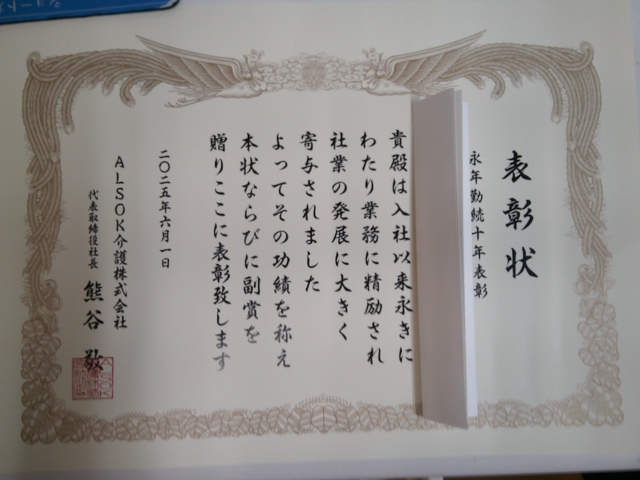 表彰状
永年勤続十年表彰
貴殿は入社以来永きに
わたり業務に精励され
社業の発展に大きく
寄与されました
よってその功績を称え
本状ならびに副賞を
贈りここに表彰致します
二〇二五年六月一日
ALSOK介護株式会社
代表取締役社長 熊谷 敬